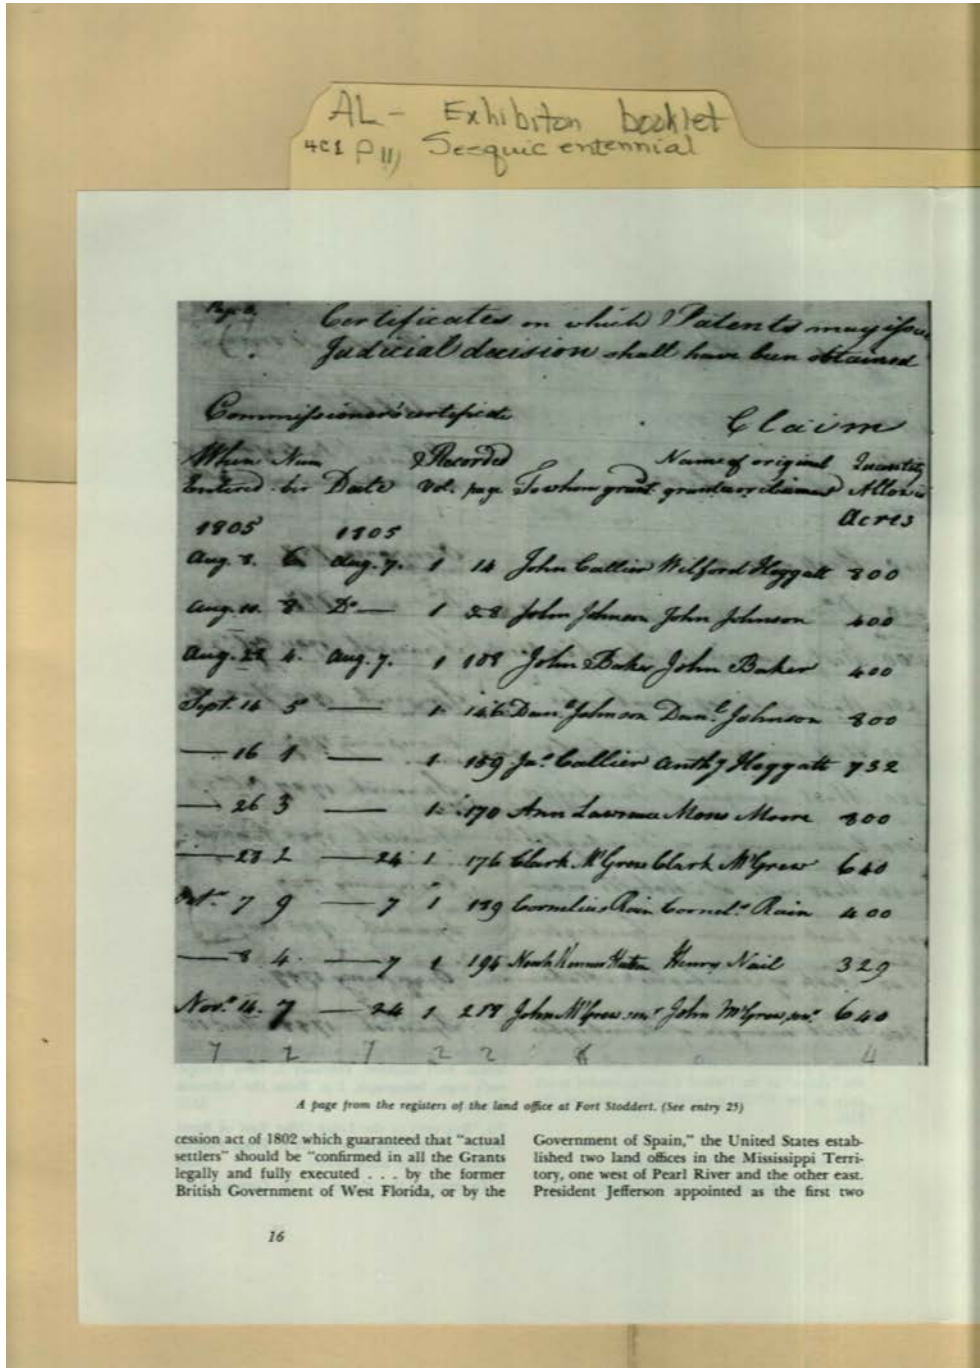 AL - Exhibiton booklet
4C1 P 11, Sesquicentennial
Page 8.
Certificates on which Patents may issue
Judicial decision shall have been obtained
Commissioner's certificate
Claim
When Num & Recorded Name of original Quantity
Entered. ber Date Vol. page To whom grant. grantee or claimant Allowed
Acres
1805 1805
Aug. 8. 6 Aug. 7. 1 14 John Callier Wilford Hoggatt 800
Aug. 10. 8 Do — 1 28 John Johnson John Johnson 400
Aug. 22 4. Aug. 7. 1 108 John Baker John Baker 400
Sept. 14 5 — 1 146 Danl. Johnson Danl. Johnson 800
— 16 1 — 1 159 Jas. Callier Anthy Hoggatt 732
— 26 3 — 1 170 Ann Lawrence Moore 800
— 28 2 — 24 1 176 Clark McGrew Clark McGrew 640
7 9 — 7 1 189 Cornelius Rain Cornels. Rain 400
— 8 4. — 7 1 194 Henry Nail 329
Novr. 14. 7 — 24 1 218 John McGrew senr John McGrew, senr. 640
7 2 7 2 2 4
A page from the registers of the land office at Fort Stoddert. (See entry 25)
cession act of 1802 which guaranteed that "actual
settlers" should be "confirmed in all the Grants
legally and fully executed . . . by the former
British Government of West Florida, or by the
Government of Spain," the United States estab-
lished two land offices in the Mississippi Terri-
tory, one west of Pearl River and the other east.
President Jefferson appointed as the first two
16